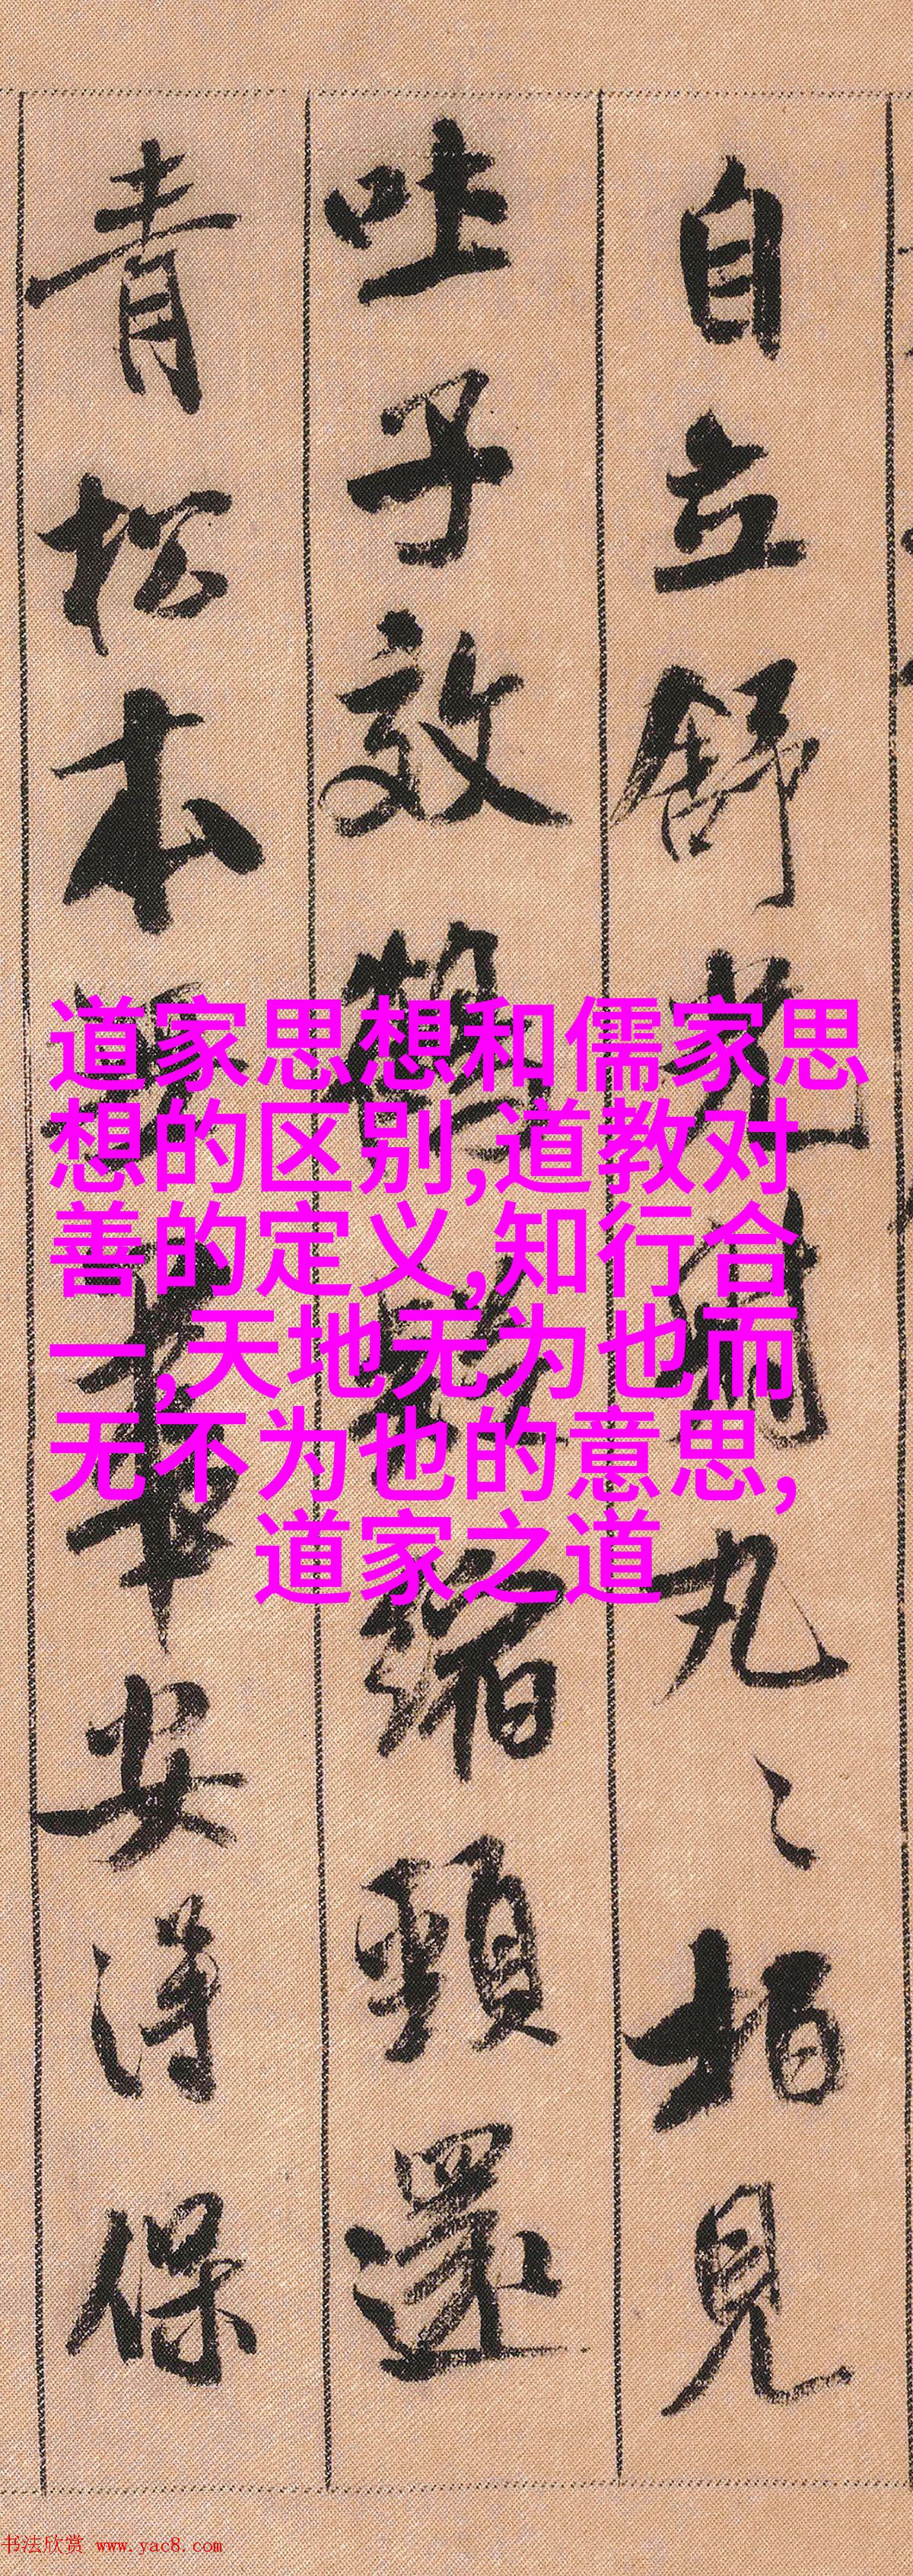 自立舒光射丸〻柏見
吐子效鶴疑縮頸還
青松本無華安得保
道家思想和儒家思
想的区别,道教对
善的定义,知行合
一,天地无为也而
无不为也的意思,
道家之道
书法欣赏 www.yac8.com